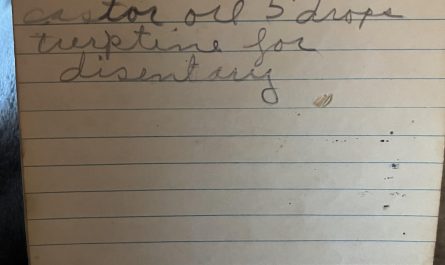 castor oil 5 drops
turptine for
disentary